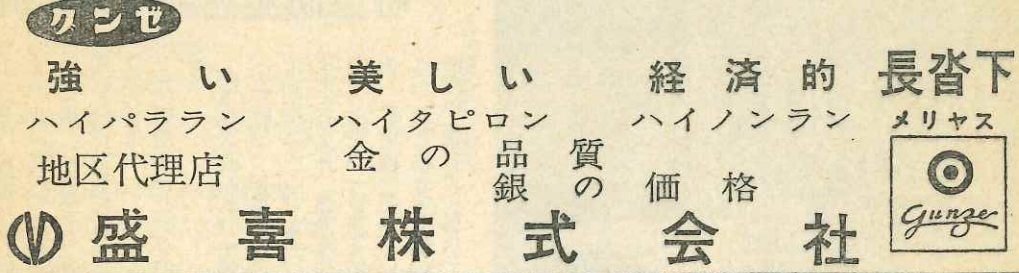 グンゼ
強い 美しい 経済的 長沓下
ハイパララン ハイタピロン ハイノンラン メリヤス
地区代理店 金の品質
銀の価格
盛喜株式会社
Gunze